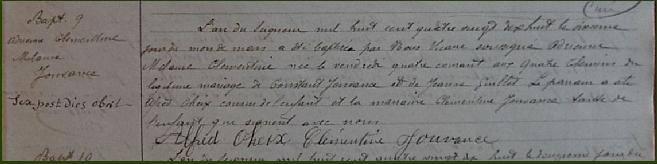 Curé
Bapt. 9
Clémentine
Mélanie
Jouvance
Sex post Dies obiit
L'an du Seigneur mil huit cent quatre vingt dix huit le sixième
jour du mois de mars a été baptisée par Nous Vicaire soussigné
Mélanie Clémentine née le vendredi quatre courant aux quatre chemins du
légitime mariage de Constant Jouvance et de Jeanne Guillet Le parrain a été
Alfred Cheix cousin de l'enfant et la marraine Clémentine Jouvance tante de
l'enfant qui signent avec nous
Alfred Cheix Clémentine Jouvance
Bapt. 10
L'an du Seigneur mil huit cent quatre vingt dix huit le douzième jour du